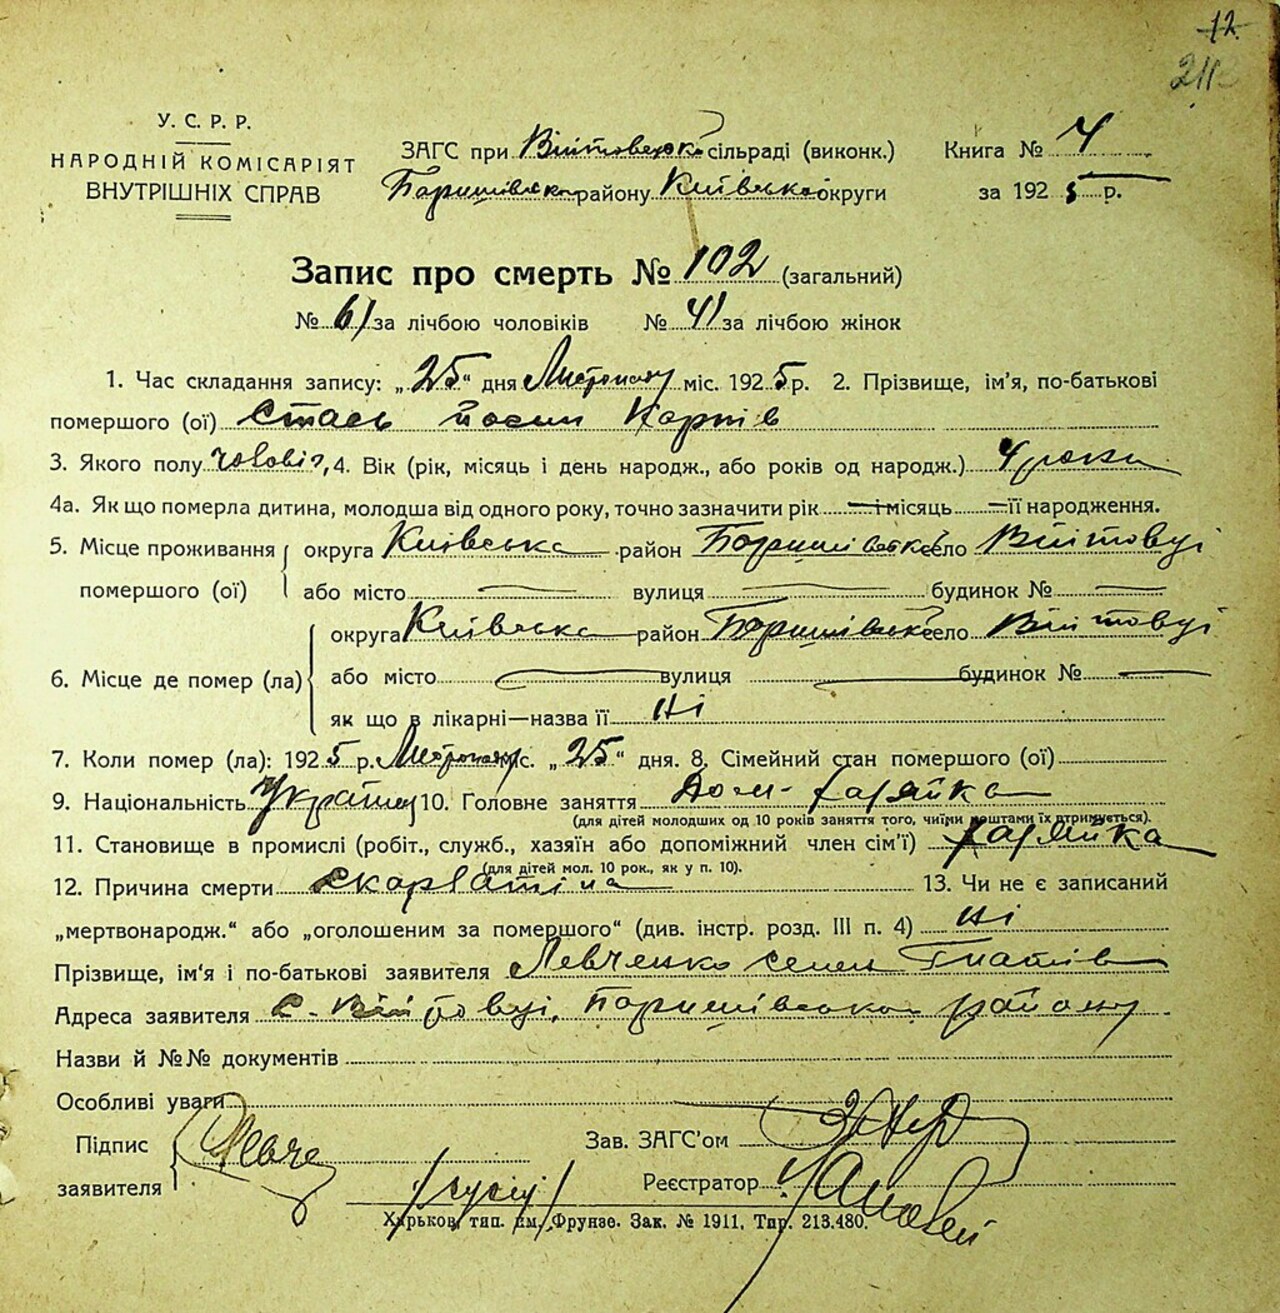 12.
211
У. С. Р. Р.
НАРОДНІЙ КОМІСАРІЯТ
ВНУТРІШНІХ СПРАВ
ЗАГС при Війтовецькою сільраді (виконк.)
Баришівського району Київської округи
Книга № 4
за 1925 р.
Запис про смерть № 102 (загальний)
№ 61 за лічбою чоловіків № 41 за лічбою жінок
1. Час складання запису: „25“ дня Листопаду міс. 1925 р. 2. Прізвище, ім'я, по-батькові
помершого (ої) Стась Йосип Карпів
3. Якого полу чоловіч, 4. Вік (рік, місяць і день народж., або років од народж.) 4 роки
4а. Як що померла дитина, молодша від одного року, точно зазначити рік — і місяць — її народження.
5. Місце проживання помершого (ої) округа Київська район Баришівськ село Війтовці
або місто — вулиця — будинок № —
6. Місце де помер (ла) округа Київська район Баришівськ село Війтовці
або місто — вулиця — будинок № —
як що в лікарні—назва її ні
7. Коли помер (ла): 1925 р. Листопаду міс. „25“ дня. 8. Сімейний стан помершого (ої)
9. Національність Українец 10. Головне заняття Дом-хазяйка
(для дітей молодших од 10 років заняття того, чиїми коштами їх втримується).
11. Становище в промислі (робіт., служб., хазяїн або допоміжний член сім'ї) хазяйка
(для дітей мол. 10 рок., як у п. 10).
12. Причина смерти скарлатина 13. Чи не є записаний
„мертвонародж.“ або „оголошеним за помершого“ (див. інстр. розд. III п. 4) ні
Прізвище, ім'я і по-батькові заявителя Левченко Семен Гнатів
Адреса заявителя с. Війтовці, Баришівського району
Назви й №№ документів
Особливі уваги
Підпис заявителя Левче
Зав. ЗАГС'ом
Реєстратор
Харьков, тип. им. Фрунзе. Зак. № 1911. Тир. 213.480.